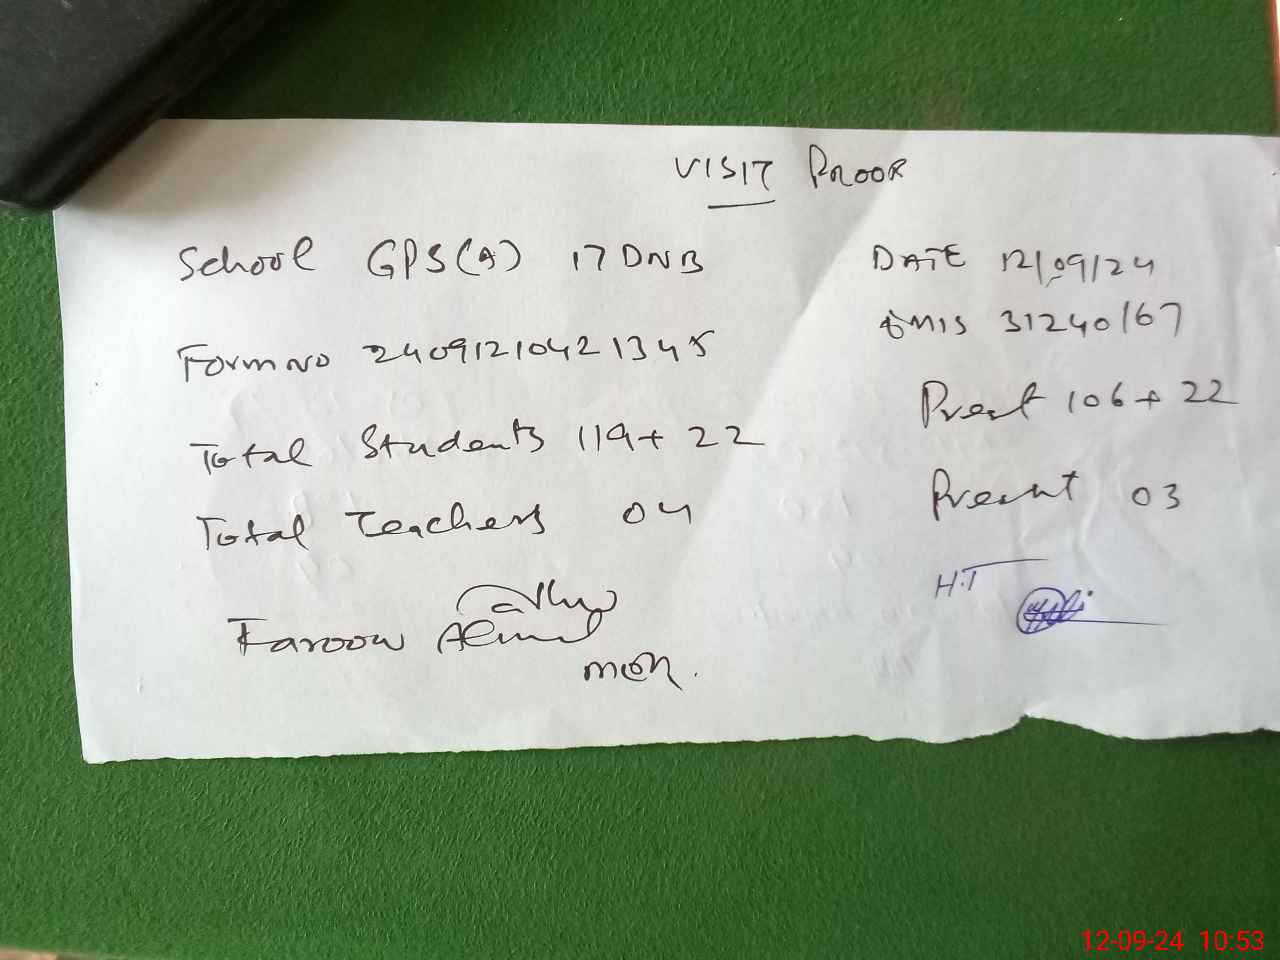 VISIT PROOF
School GPS(A) 17 DNB DATE 12/09/24
EMIS 31240167
Form no 24091210421345
Total Students 119+22 Prest 106+22
Total Teachers 04 Present 03
H.T
Farooq Ahmad
12-09-24 10:53